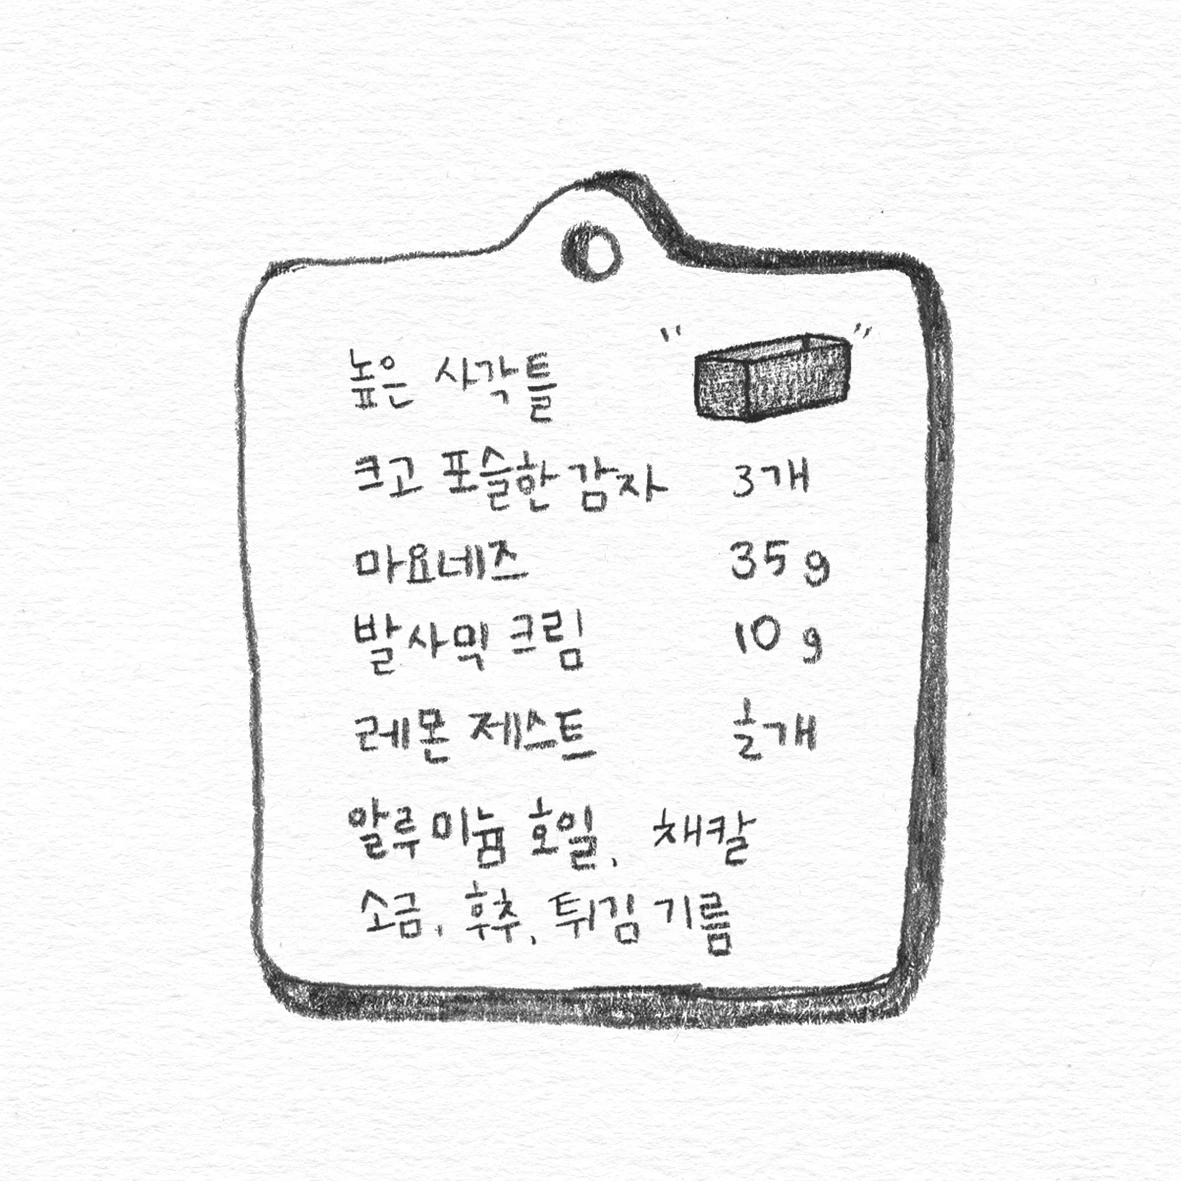 높은 사각틀 " "
크고 포슬한 감자 3개
마요네즈 35g
발사믹 크림 10g
레몬 제스트 할개
알루미늄 호일, 채칼
소금, 후추, 튀김 기름